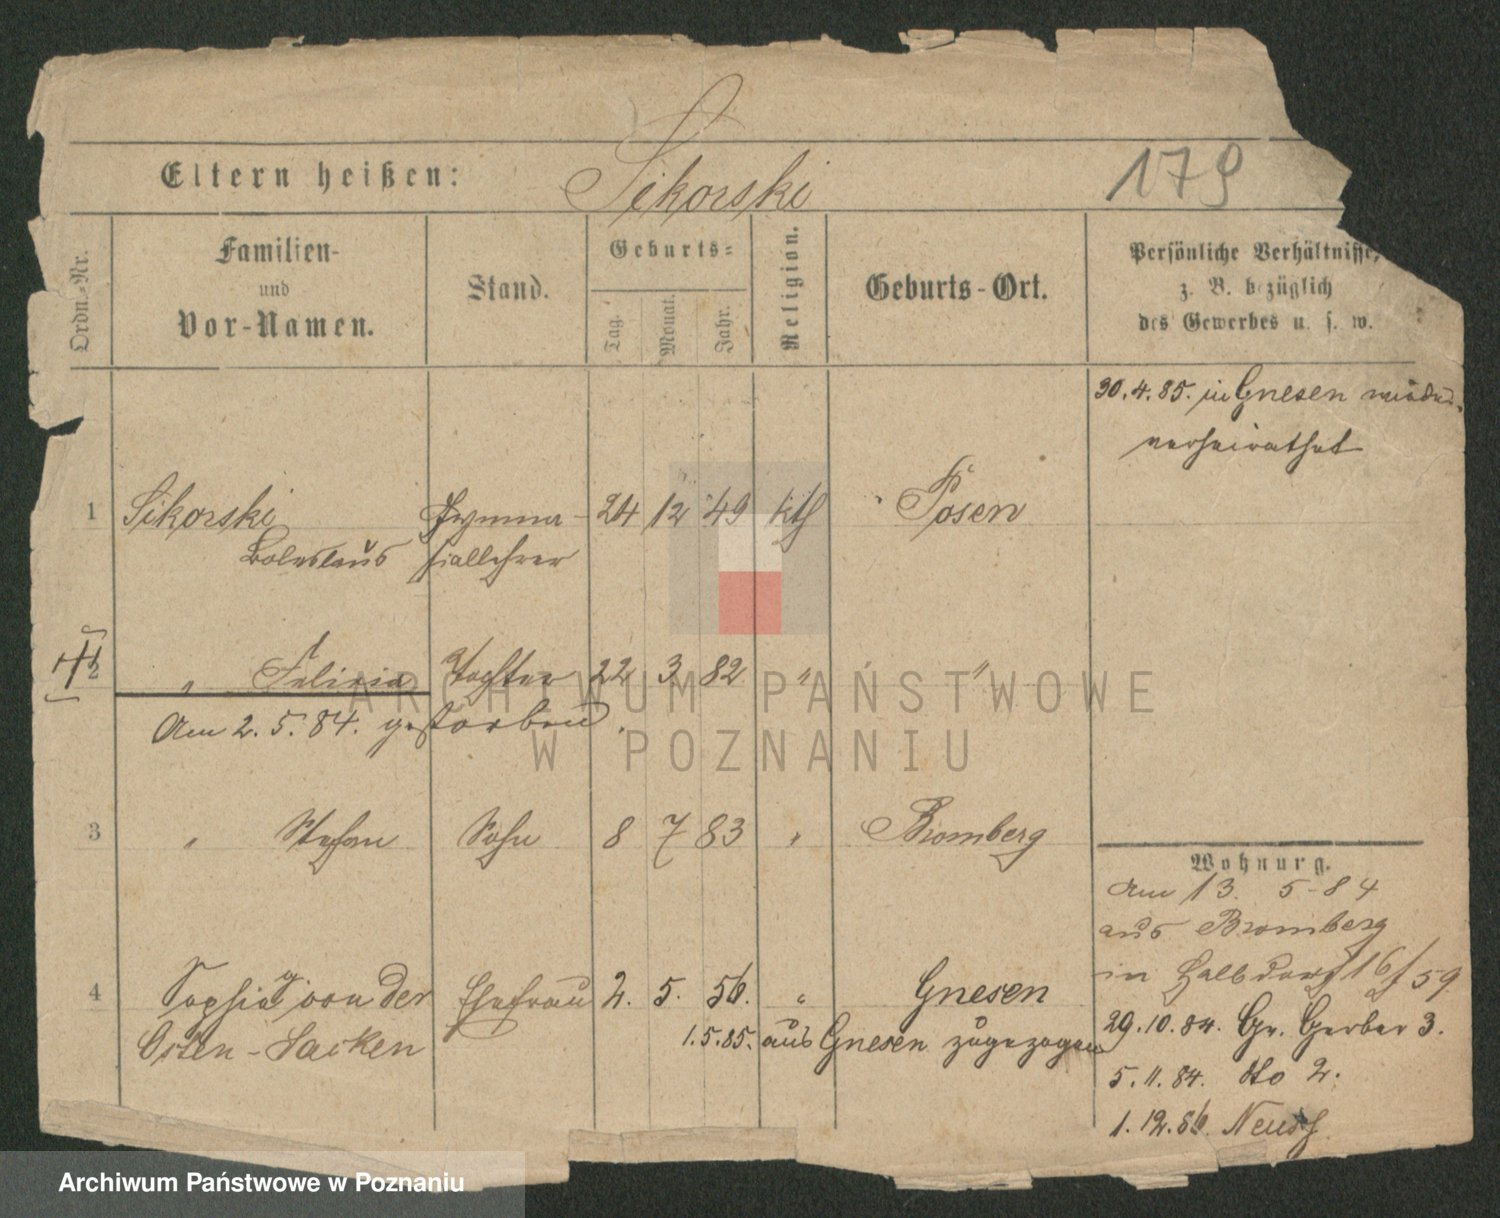 Eltern heißen: Sikorski 179
Ordn.-Nr. Familien- und Vor-Namen. Stand. Geburts= Tag. Monat. Jahr. Religion. Geburts-Ort. Persönliche Verhältnisse, z. B. bezüglich des Gewerbes u. s. w.
30.4.85. in Gnesen wieder
verheirathet
1 Sikorski Gymna- 24 12 49 kth Posen
Boleslaus siallehrer
2 " Felicia Tochter 22 3 82 " "
Am 2.5.84. gestorben.
3 " Stefan Sohn 8 7 83 " Bromberg
Wohnung.
Am 13. 5-84
aus Bromberg
in Halbdorf 16/59
4 Sophia g. von der Ehefrau 2. 5. 56. " Gnesen
Osten-Sacken
1.5.85. aus Gnesen zugezogen
29.10.84. Gr. Gerber 3.
5.11.84. dto 2.
1.12.86.
ARCHIWUM PAŃSTWOWE
W POZNANIU
Archiwum Państwowe w Poznaniu